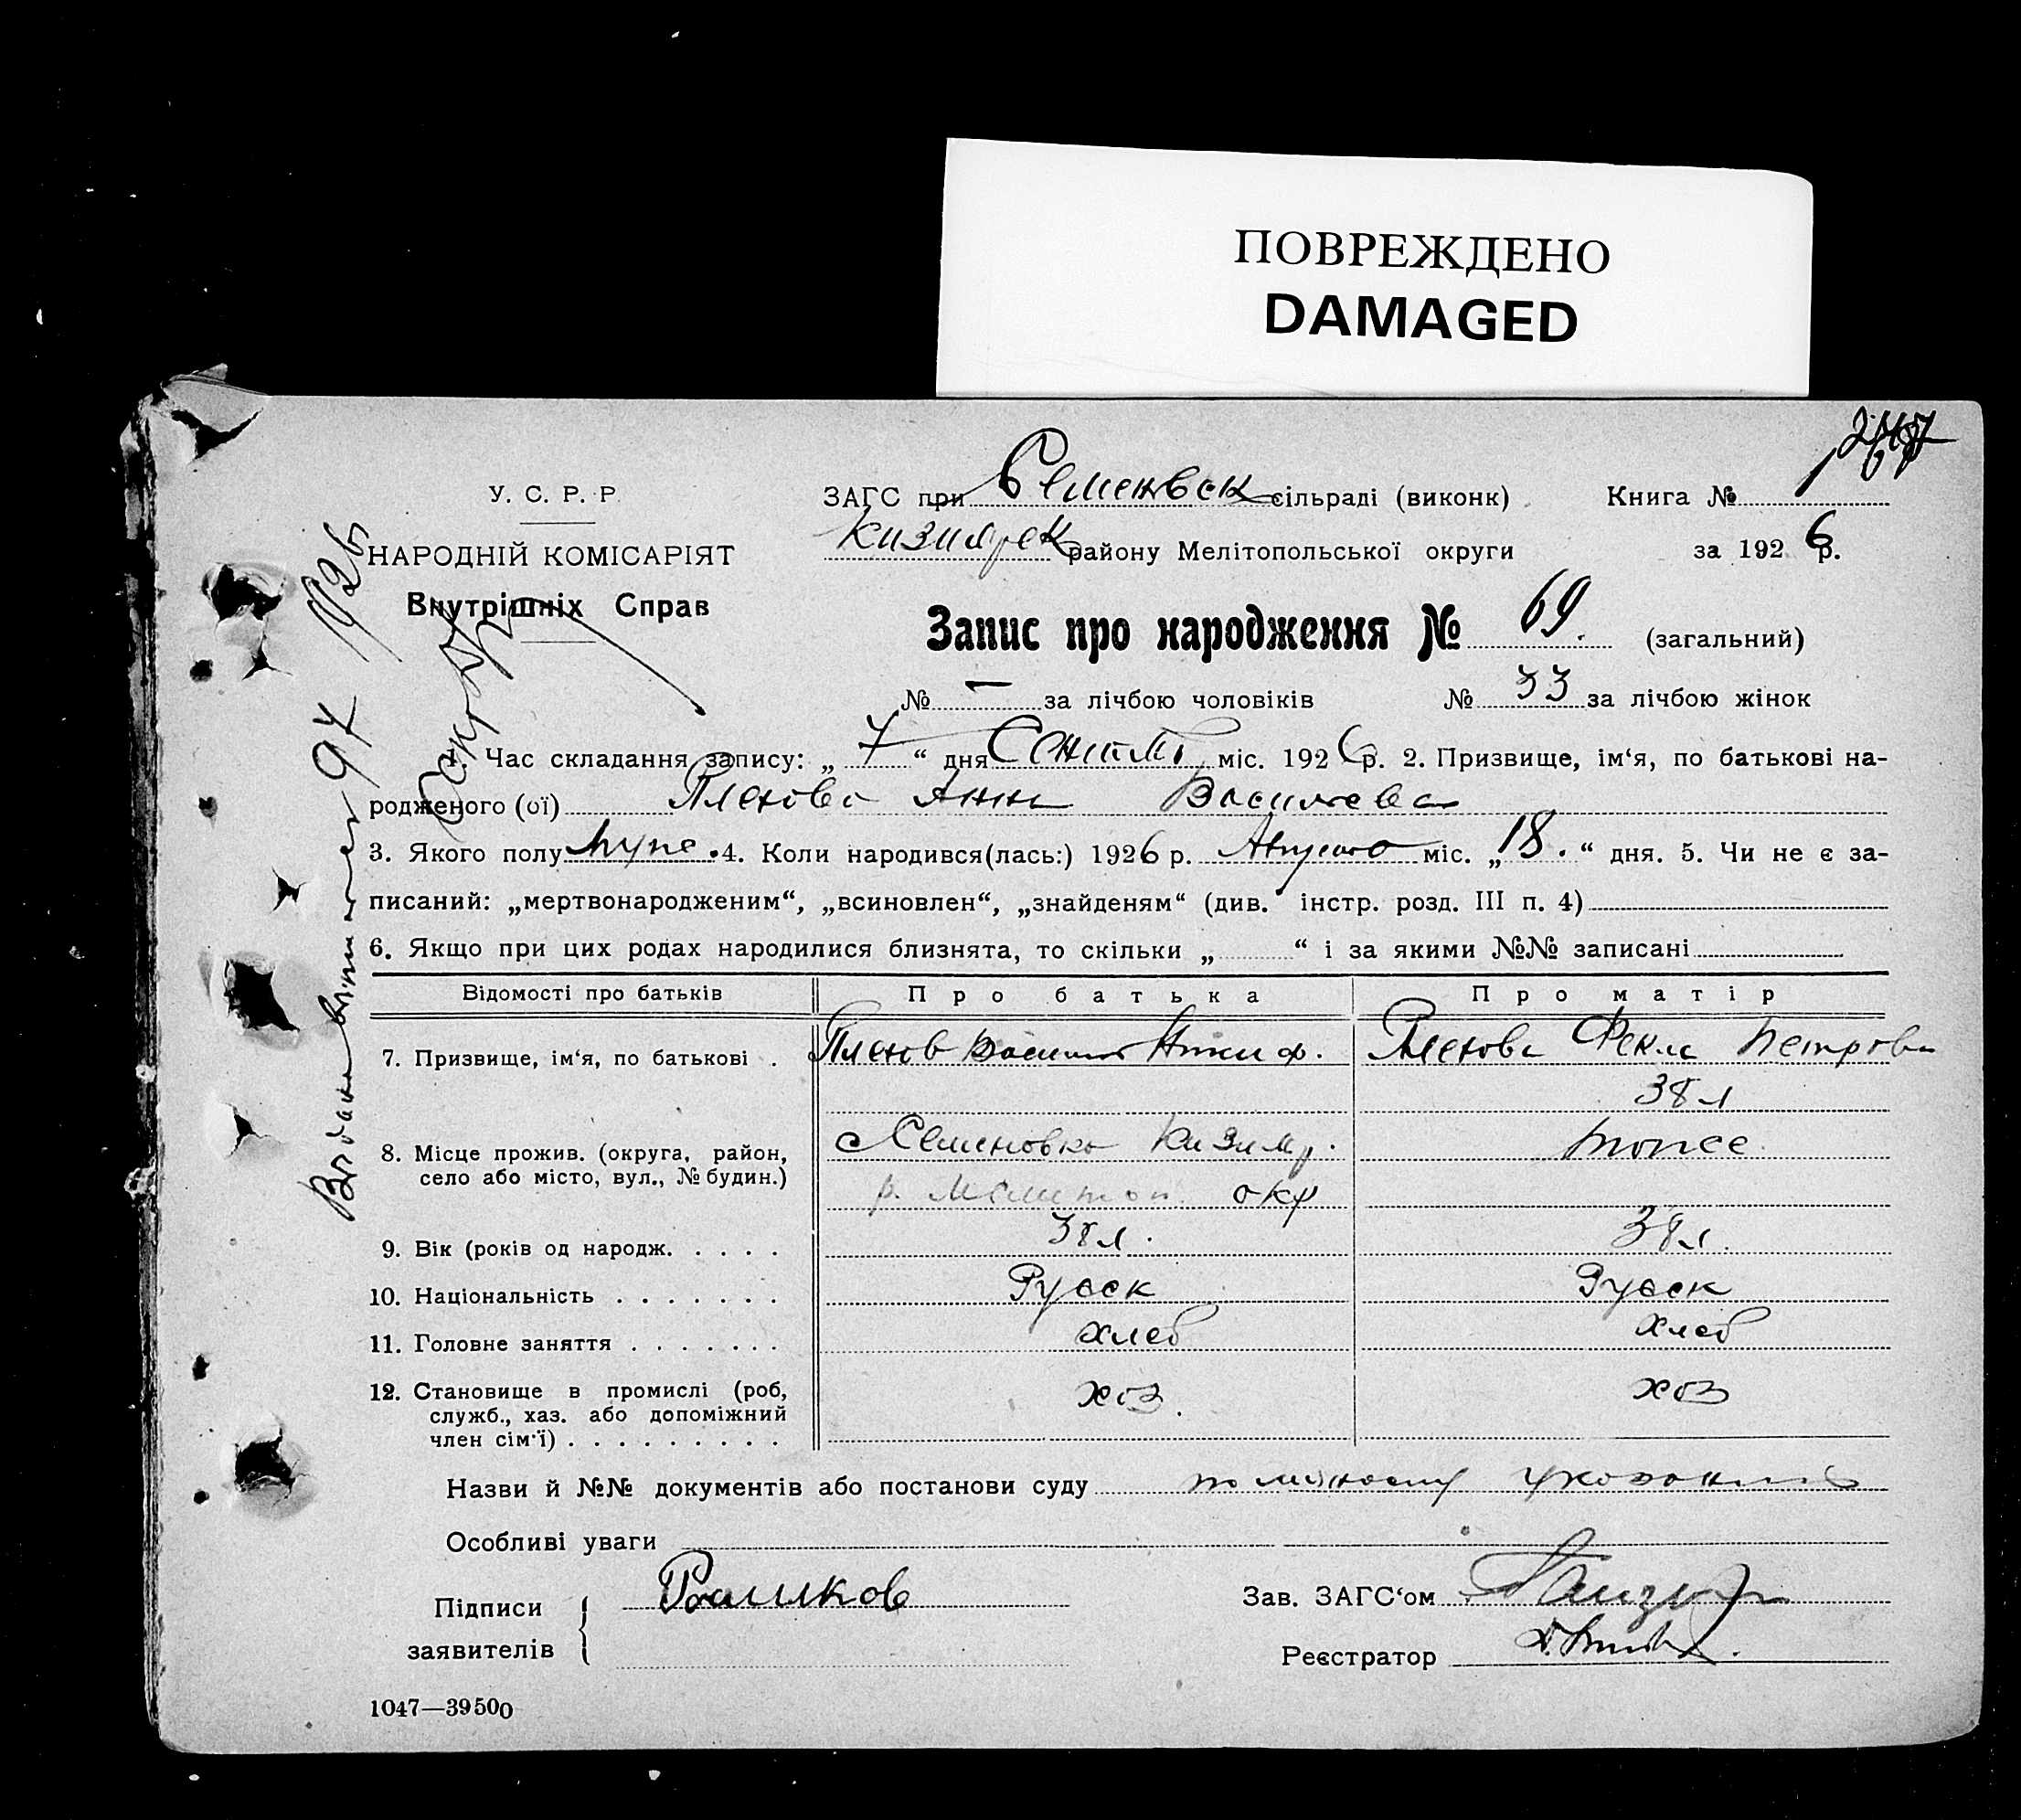 ПОВРЕЖДЕНО
DAMAGED
У. С. Р. Р.
НАРОДНІЙ КОМІСАРІЯТ
Внутрішніх Справ
ЗАГС при Семеновск сільраді (виконк)
Книга №
района Мелітопольської округи
за 1926 р.
Запис про народження № 69. (загальний)
№ — за лічбою чоловіків № 33 за лічбою жінок
1. Час складання запису: „ 7 “ дня міс. 1926 р. 2. Призвище, ім‘я, по батькові на-
родженого (ої) Анна Васильева
3. Якого полу 4. Коли народився(лась:) 1926 р. Августа міс. „ 18. “ дня. 5. Чи не є за-
писаний: „мертвонародженим“, „всиновлен“, „знайденям“ (див. інстр. розд. III п. 4)
6. Якщо при цих родах народилися близнята, то скільки „ “ і за якими №№ записані
Відомості про батьків Про батька Про матір
7. Призвище, ім‘я, по батькові . Василий Никиф. Фекла Петрова
38 л
8. Місце прожив. (округа, район,
село або місто, вул., № будин.)
с Семеновка Кизияр.
р. Мелитоп. окр
тоже
9. Вік (років од народж. . . . . 38 л. 38 л.
10. Національність . . . . . . . Русск Русск
11. Головне заняття . . . . . . . хлеб хлеб
12. Становище в промислі (роб,
служб., хаз. або допоміжний
член сім‘ї) . . . . . . . . .
хоз. хоз
Назви й №№ документів або постанови суду
Особливі уваги
Підписи
заявителів
Зав. ЗАГС‘ом
Реєстратор
1047—39500